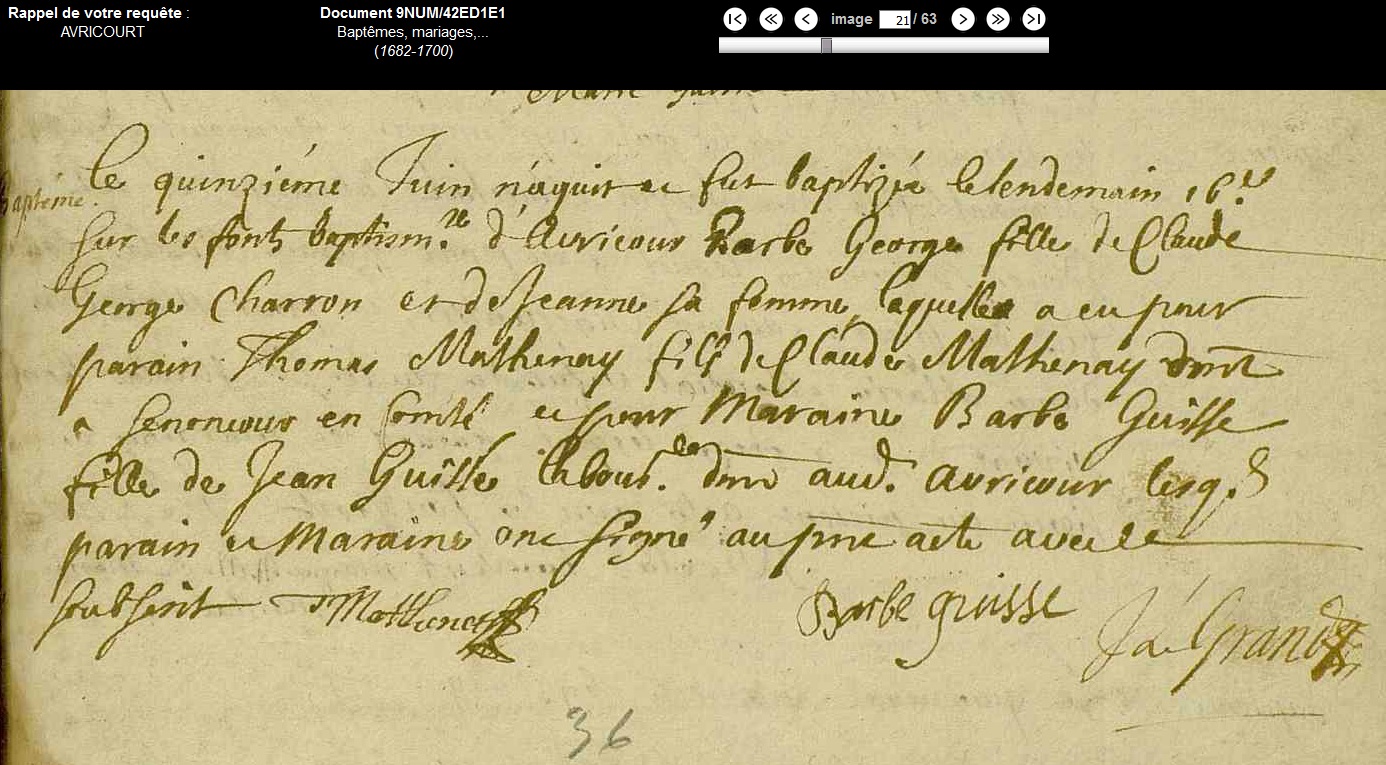 Rappel de votre requête :
AVRICOURT
Document 9NUM/42ED1E1
Baptêmes, mariages,...
(1682-1700)
image 21 / 63
Marie
Baptéme.
Le quinziéme Juin náquit et fut baptizéé le lendemain 16.e
sur les fonts baptism.x d'Avricour Barbe George fille de Claude
George Charron et de Jeanne sa femme, laquelle a eu pour
parain Thomas Mathenay fils de Claude Mathenay dmt
a Senoncour en Comté et pour Maraine Barbe Guisse
fille de Jean Guisse labour. dmt aud. Avricour lesq.s
parain et Maraine ont signé au pnt acte avec le
soubscrit T Mathenay
Barbe guisse
Ja Grand
36